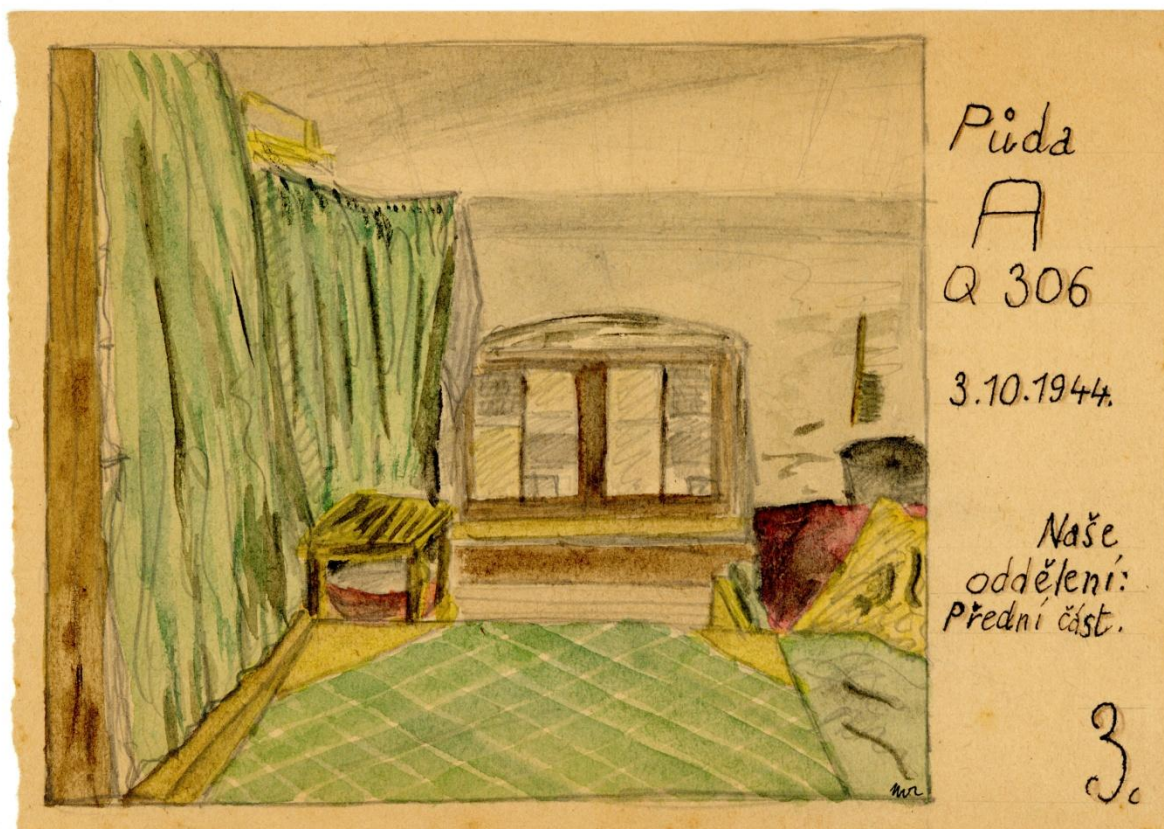 Půda
A
Q 306
3.10.1944.
Naše
oddělení:
Přední část.
3.